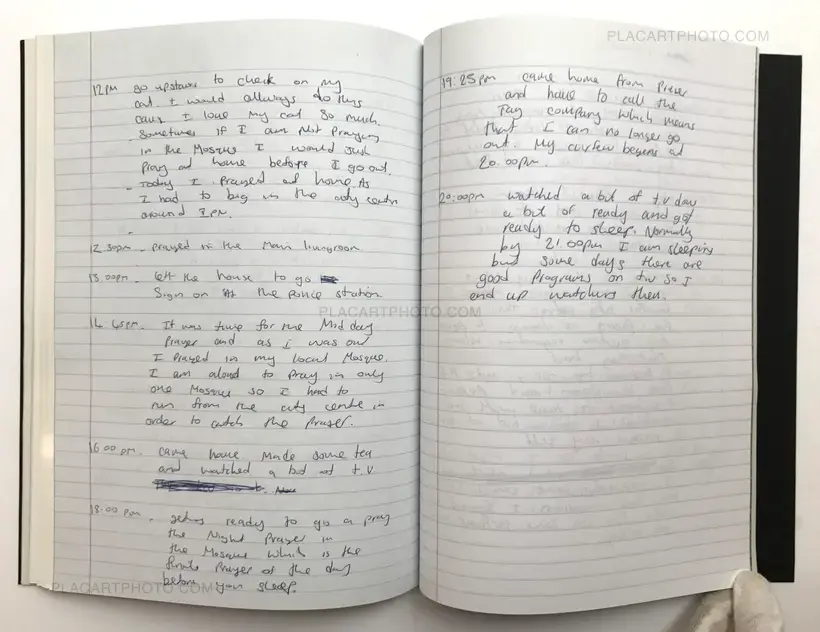 PLACARTPHOTO.COM
12PM go upstairs to check on my
cat. I would allways do this
cause I love my cat so much.
Sometimes if I am Not Praying
in the Mosque I would Just
Pray at home before I go out.
- Today I Prayed at home. As
I had to be in the city centre
around 1PM.
12.30pm - prayed in the Main livingroom
13.00pm - left the house to go
Sign on At the police station.
14.45pm. It was time for the Mid day
Prayer and as i was out
I Prayed in my local Mosque.
I am aloud to Pray in only
one Mosque so I had to
run from the city centre in
order to catch the Prayer.
PLACARTPHOTO.COM
16.00pm. came home Made some tea
and watched a bit of t.v
18.00pm - getting ready to go a pray
the Night Prayer in
the Mosque which is the
final Prayer of the day
before you sleep.
PLACARTPHOTO.COM
19:25pm came home from Prayer
and have to call the
Tag company which means
that I can no longer go
out. My curfew begins at
20.00pm.
20:00pm watched a bit of t.v day
a bit of ready and got
ready to sleep. Normally
by 21.00pm I am sleeping
but some days there are
good Programs on tv so I
end up watching them.